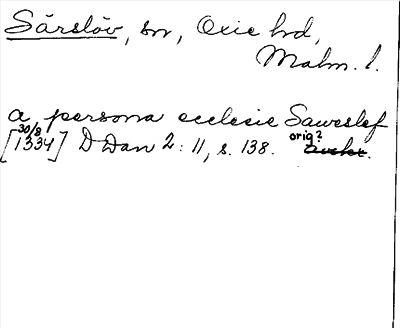 Särslöv, sn, Oxie hd,
Malm. l.
a persona ecclesie Saweslef
30/8
[1334] D Dan 2: 11, s. 138. orig?